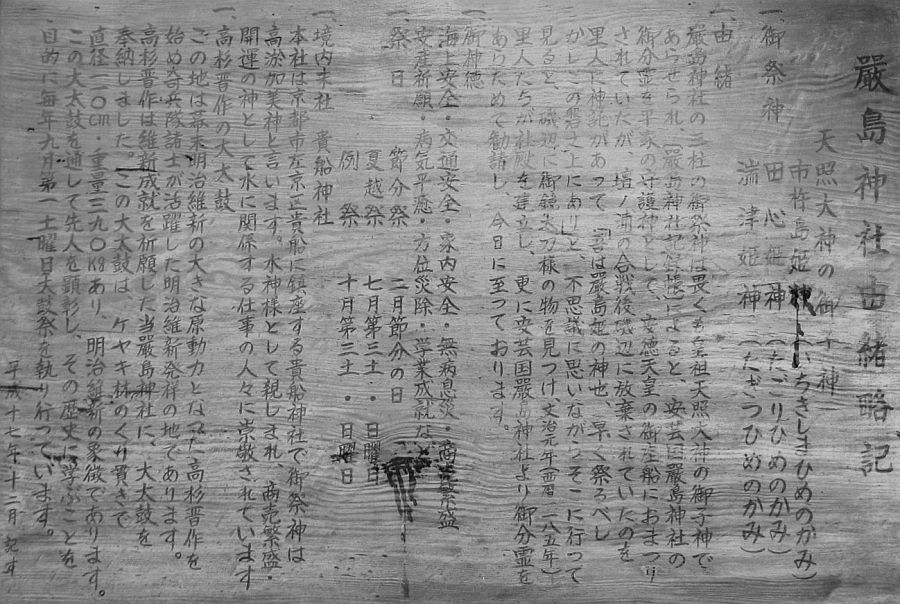 嚴島神社由緒略記
一、御祭神
天照大神の御子神
市杵島姫神（いちきしまひめのかみ）
田心姫神（たごりひめのかみ）
湍津姫神（たぎつひめのかみ）
一、由緒
嚴島神社の三柱の御祭神は畏くも皇祖天照大神の御子神で
あらせられ、「嚴島神社記保帳」によると、安芸国嚴島神社の
御分霊を平家の守護神として、安徳天皇の御座船におまつり
されていたが、壇ノ浦の合戦後磯辺に放棄されていたのを
里人に神託があって「吾は嚴島姫の神也、早く祭るべし
かしこの磐之上にあり」と、不思議に思いながらそこに行って
見ると、磯辺に御鏡太刀様の物を見つけ、文治元年（西暦一一八五年）
里人たちが社殿を建立し、更に安芸国嚴島神社より御分霊を
あらためて勧請し、今日に至っております。
一、御神徳
海上安全・交通安全・家内安全・無病息災・商売繁盛
安産祈願・病気平癒・方位災除・学業成就など
一、祭日
節分祭 二月節分の日
夏越祭 七月第三土・日曜日
例祭 十月第三土・日曜日
一、境内末社 貴船神社
本社は京都市左京区貴船に鎮座する貴船神社で御祭神は
高淤加美神と言います。水神様として親しまれ、商売繁盛・
開運の神として水に関係する仕事の人々に崇敬されています
一、高杉晋作の大太鼓
この地は幕末明治維新の大きな原動力となった高杉晋作を
始め奇兵隊諸士が活躍した明治維新発祥の地であります。
高杉晋作は維新成就を祈願した当嚴島神社に、大太鼓を
奉納しました。この大太鼓は、ケヤキ材のくり貫きで
直径一一〇cm・重量三九〇kgあり、明治維新の象徴であります。
この大太鼓を通して先人を顕彰し、その歴史に学ぶことを
目的に毎年九月第一土曜日太鼓祭を執り行っています。
平成十七年十二月 記す